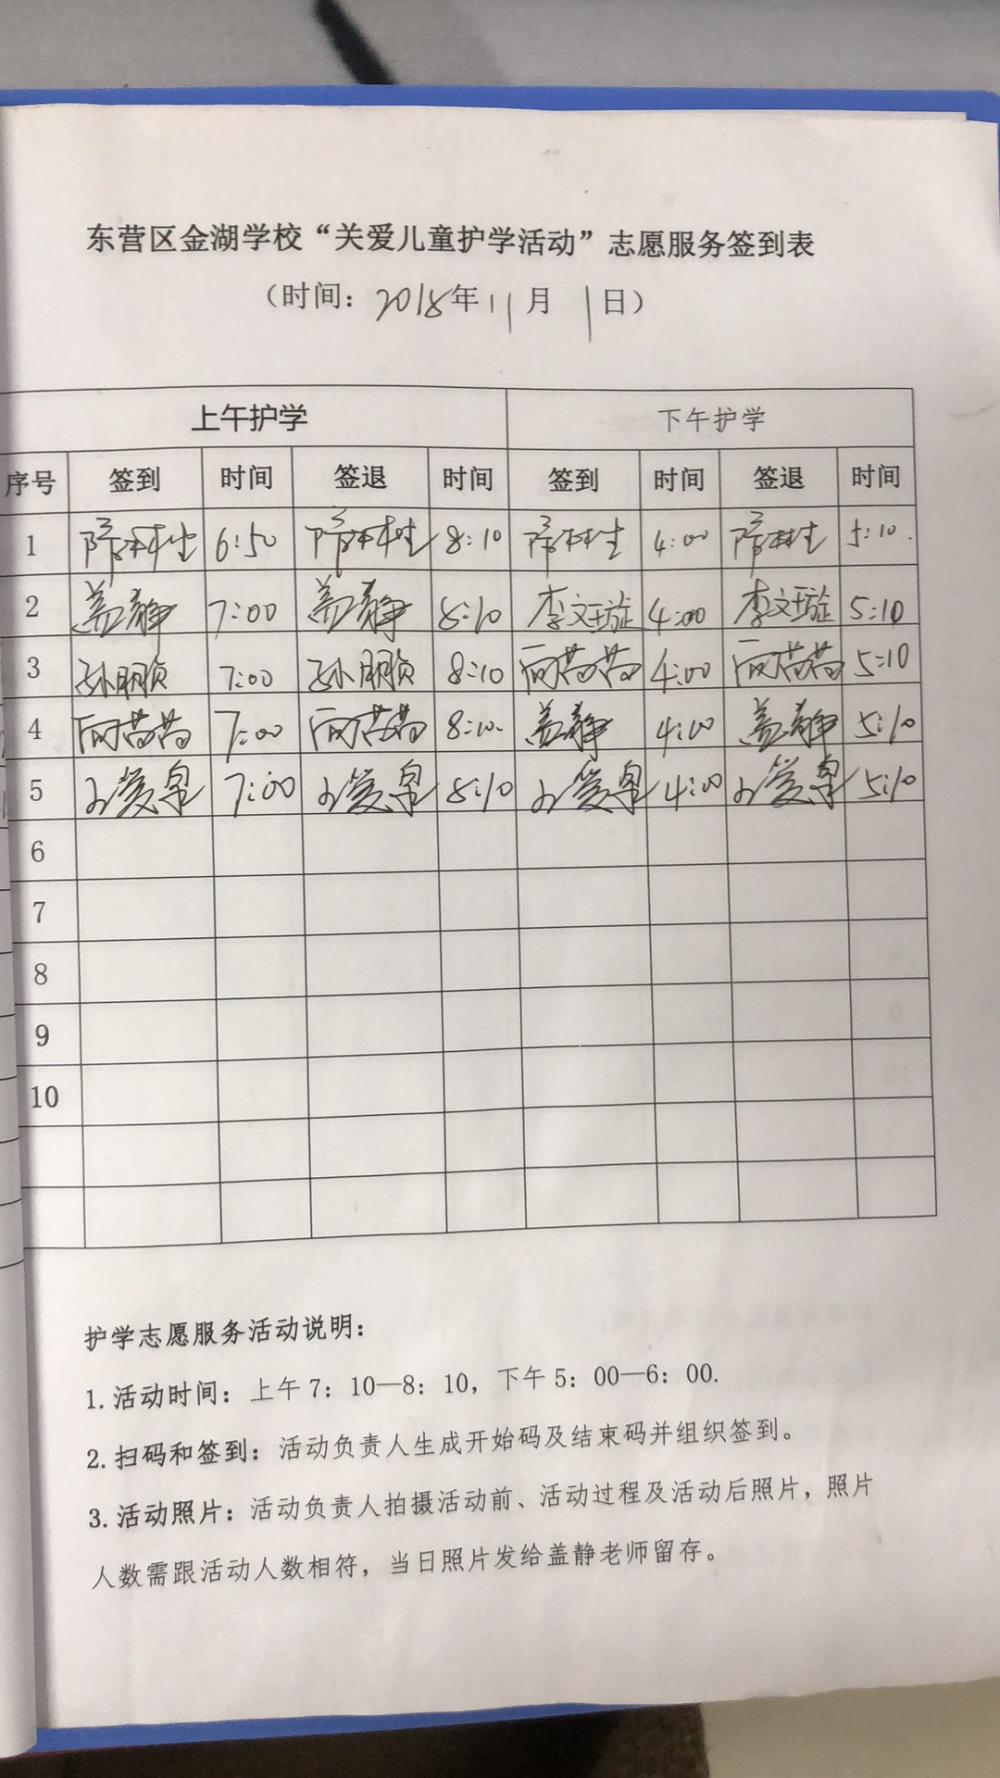 东营区金湖学校“关爱儿童护学活动”志愿服务签到表
（时间：2018年11月1日）
上午护学 下午护学
序号 签到 时间 签退 时间 签到 时间 签退 时间
1 6:50 8:10 4:00 5:10.
2 盖静 7:00 盖静 8:10 李文璇 4:00 李文璇 5:10
3 孙鹏 7:00 孙鹏 8:10 苗苗 4:00 苗苗 5:10
4 苗苗 7:00 苗苗 8:10. 盖静 4:00 盖静 5:10
5 7:00 8:10 4:00 5:10
6
7
8
9
10
护学志愿服务活动说明：
1.活动时间：上午7：10—8：10，下午5：00—6：00.
2.扫码和签到：活动负责人生成开始码及结束码并组织签到。
3.活动照片：活动负责人拍摄活动前、活动过程及活动后照片，照片
人数需跟活动人数相符，当日照片发给盖静老师留存。